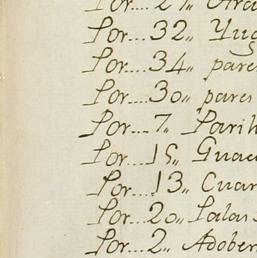 Por...27,,
Por...32,, Yug
Por...34,, pares
Por...30,, pares
Por...7,, Parih
Por...15,, Guac
Por...13,, Cuar
Por...20,, Palas
Por...2,, Adober